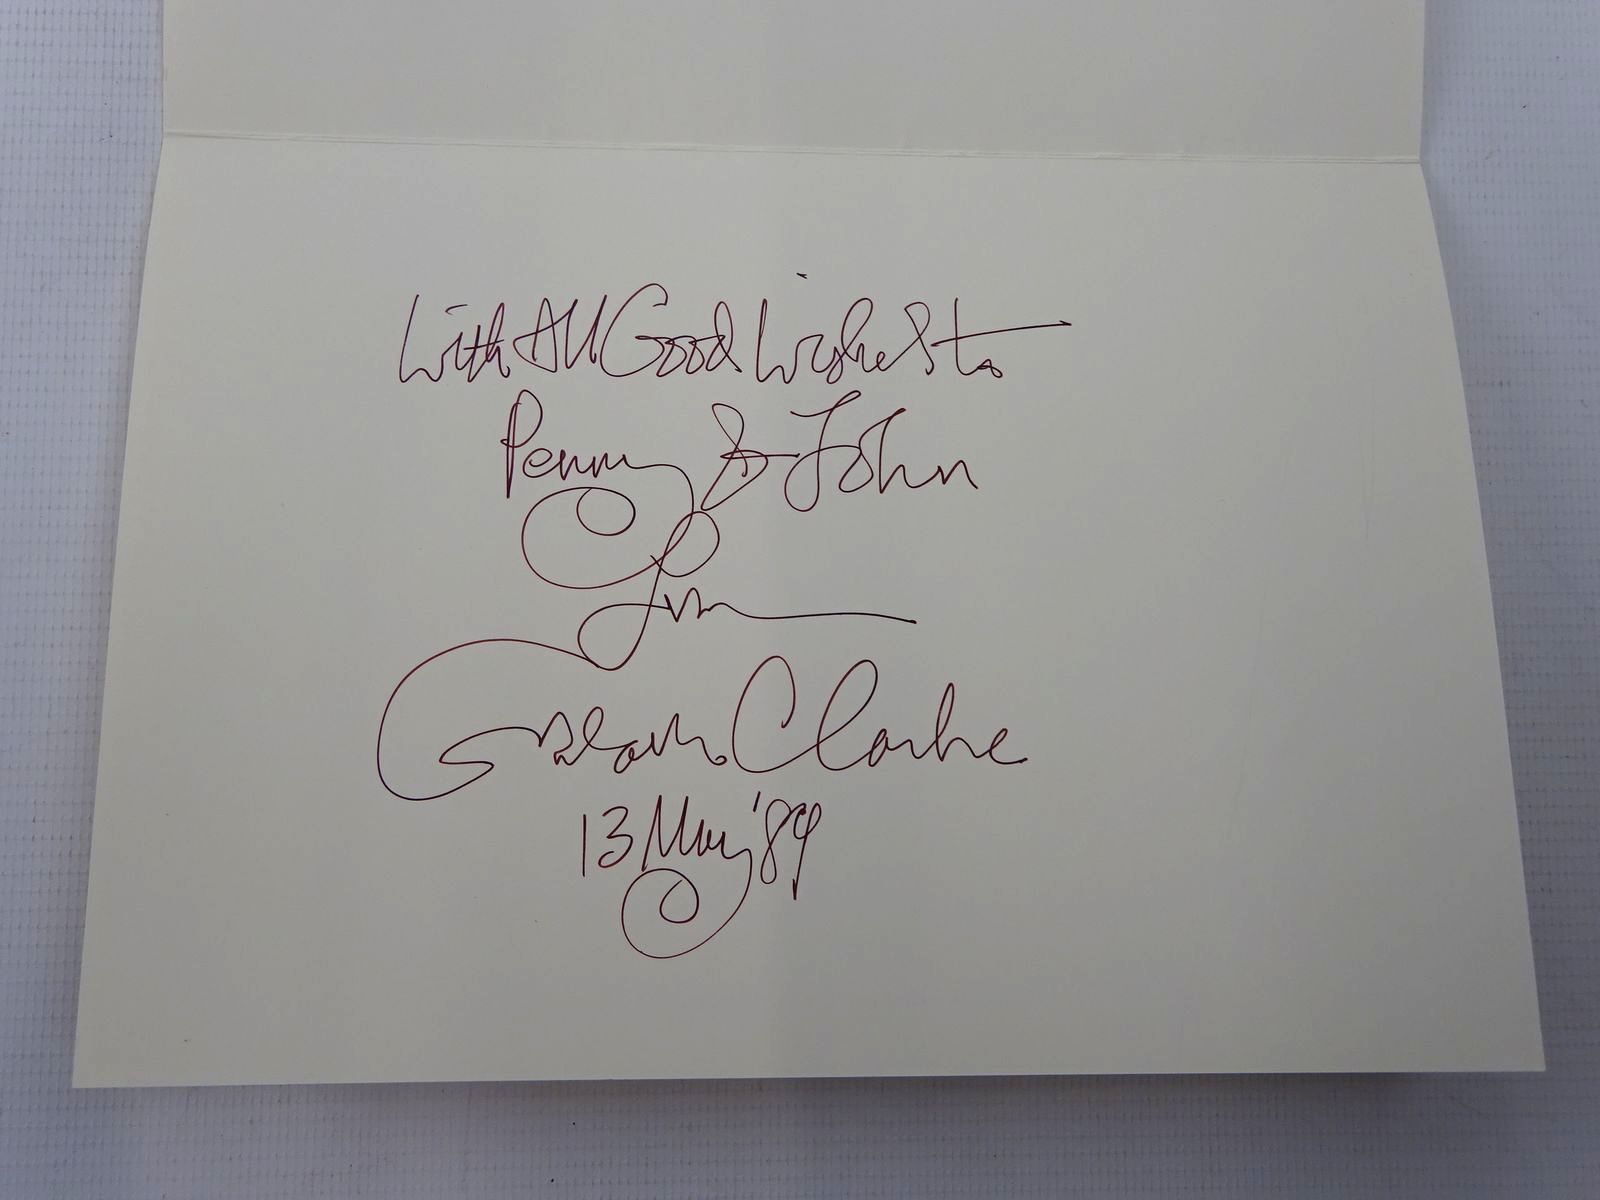 With All Good Wishes to
Penny & John
from
Graham Clarke
13 May '89